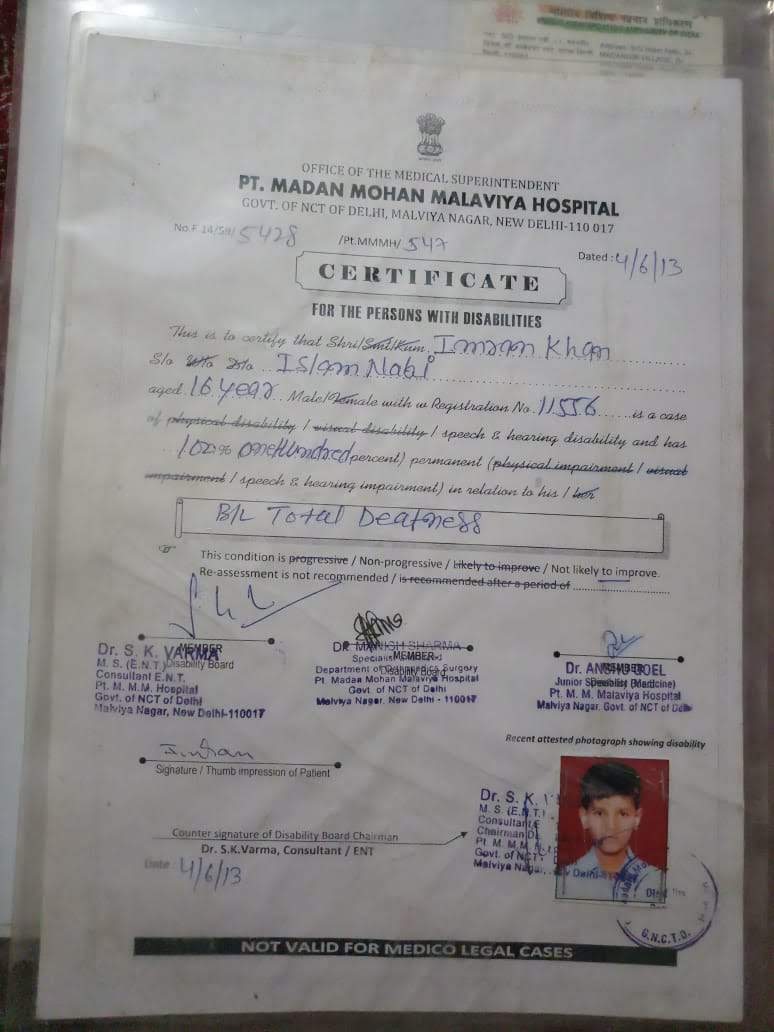 OFFICE OF THE MEDICAL SUPERINTENDENT
PT. MADAN MOHAN MALAVIYA HOSPITAL
GOVT. OF NCT OF DELHI, MALVIYA NAGAR, NEW DELHI-110 017
No.F.14/59/5428 /Pt.MMMH/547
Dated : 4/6/13
CERTIFICATE
FOR THE PERSONS WITH DISABILITIES
This is to certify that Shri/Smt/Kum. Imran Khan
S/o W/o D/o Islam Nabi
aged 16 year Male/Female with w Registration No. 11556 is a case
of physical disability / visual disability / speech & hearing disability and has
100% one Hundred percent) permanent (physical impairment / visual
impairment / speech & hearing impairment) in relation to his / her
B/L Total Deafness
This condition is progressive / Non-progressive / Likely to improve / Not likely to improve.
Re-assessment is not recommended / is recommended after a period of
Dr. S. K. VARMA
MEMBER
M. S. (E.N.T.) Disability Board
Consultant E.N.T.
Pt. M. M. M. Hospital
Govt. of NCT of Delhi
Malviya Nagar, New Delhi-110017
DR. MANISH SHARMA
MEMBER
Disability Board
Department of Orthopaedics Surgery
Pt. Madan Mohan Malaviya Hospital
Govt. of NCT of Delhi
Malviya Nagar, New Delhi - 110017
Dr. ANSHU GOEL
MEMBER
Junior Specialist (Medicine)
Pt. M. M. Malaviya Hospital
Malviya Nagar, Govt. of NCT of Delhi
Recent attested photograph showing disability
Imran
Signature / Thumb impression of Patient
Counter signature of Disability Board Chairman
Dr. S.K.Varma, Consultant / ENT
Date : 4/6/13
Dr. S. K.
M. S. (E.N.T.)
Consultant
Chairman
Pt. M. M. M.
Govt. of NCT
Malviya Nagar, New Delhi
G.N.C.T.D.
NOT VALID FOR MEDICO LEGAL CASES